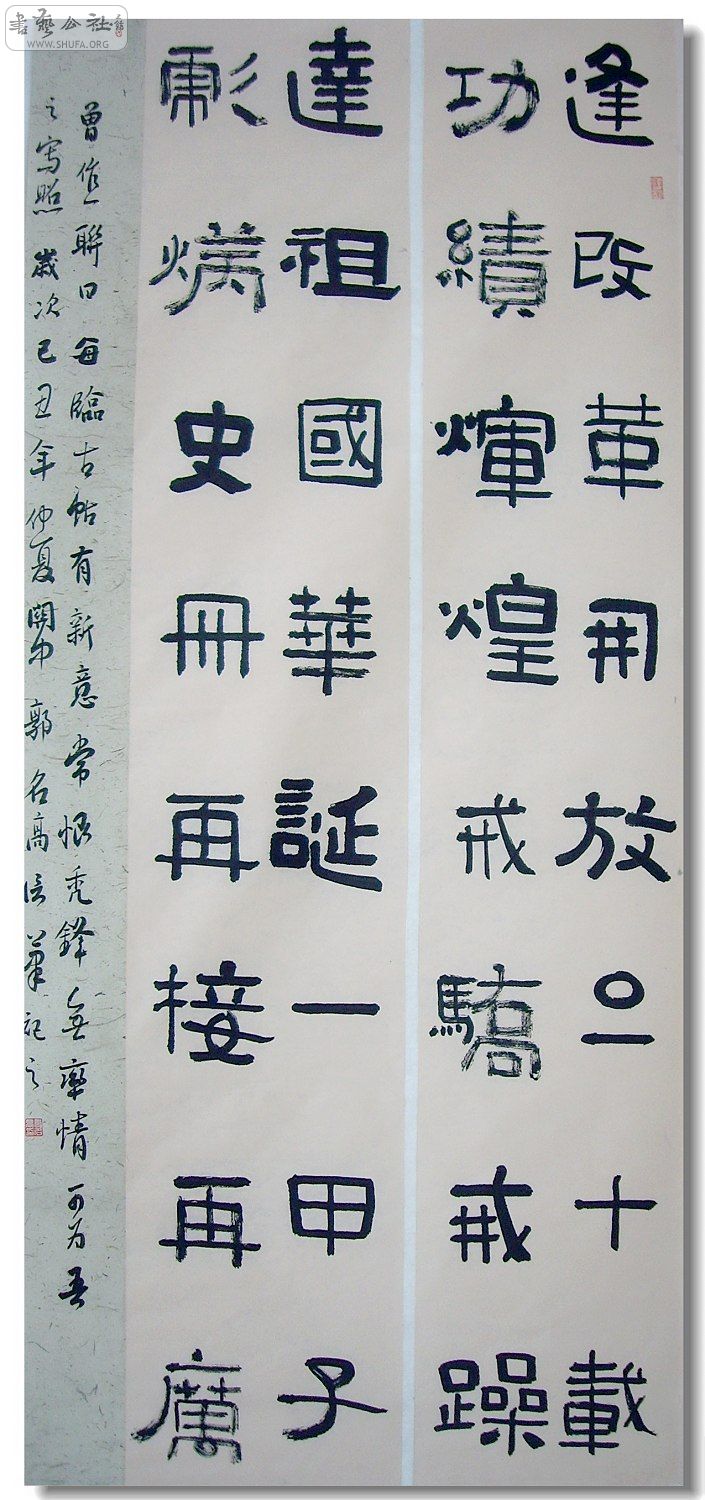 書藝公社
WWW.SHUFA.ORG
逢改革開放十載
功績煇煌戒驕戒躁
達祖國華誕一甲子
彪史冊再接再厲
曾作聯曰每臨古帖有新意常恨禿鋒無率情可为吾
之寫照歲次己丑年仲夏關中郭名高信筆記之